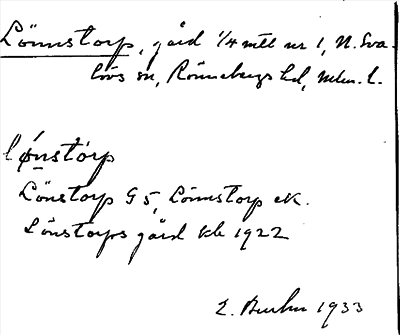 Lönnstorp, gård 1/4 mtl nr 1, N. Sva-
lövs sn, Rönnebergs hd, Mlm. l.
lǿnstòrp
Lönstorp G 5, Lönnstorp ek.
Lönstorps gård kb 1922
E. 1933